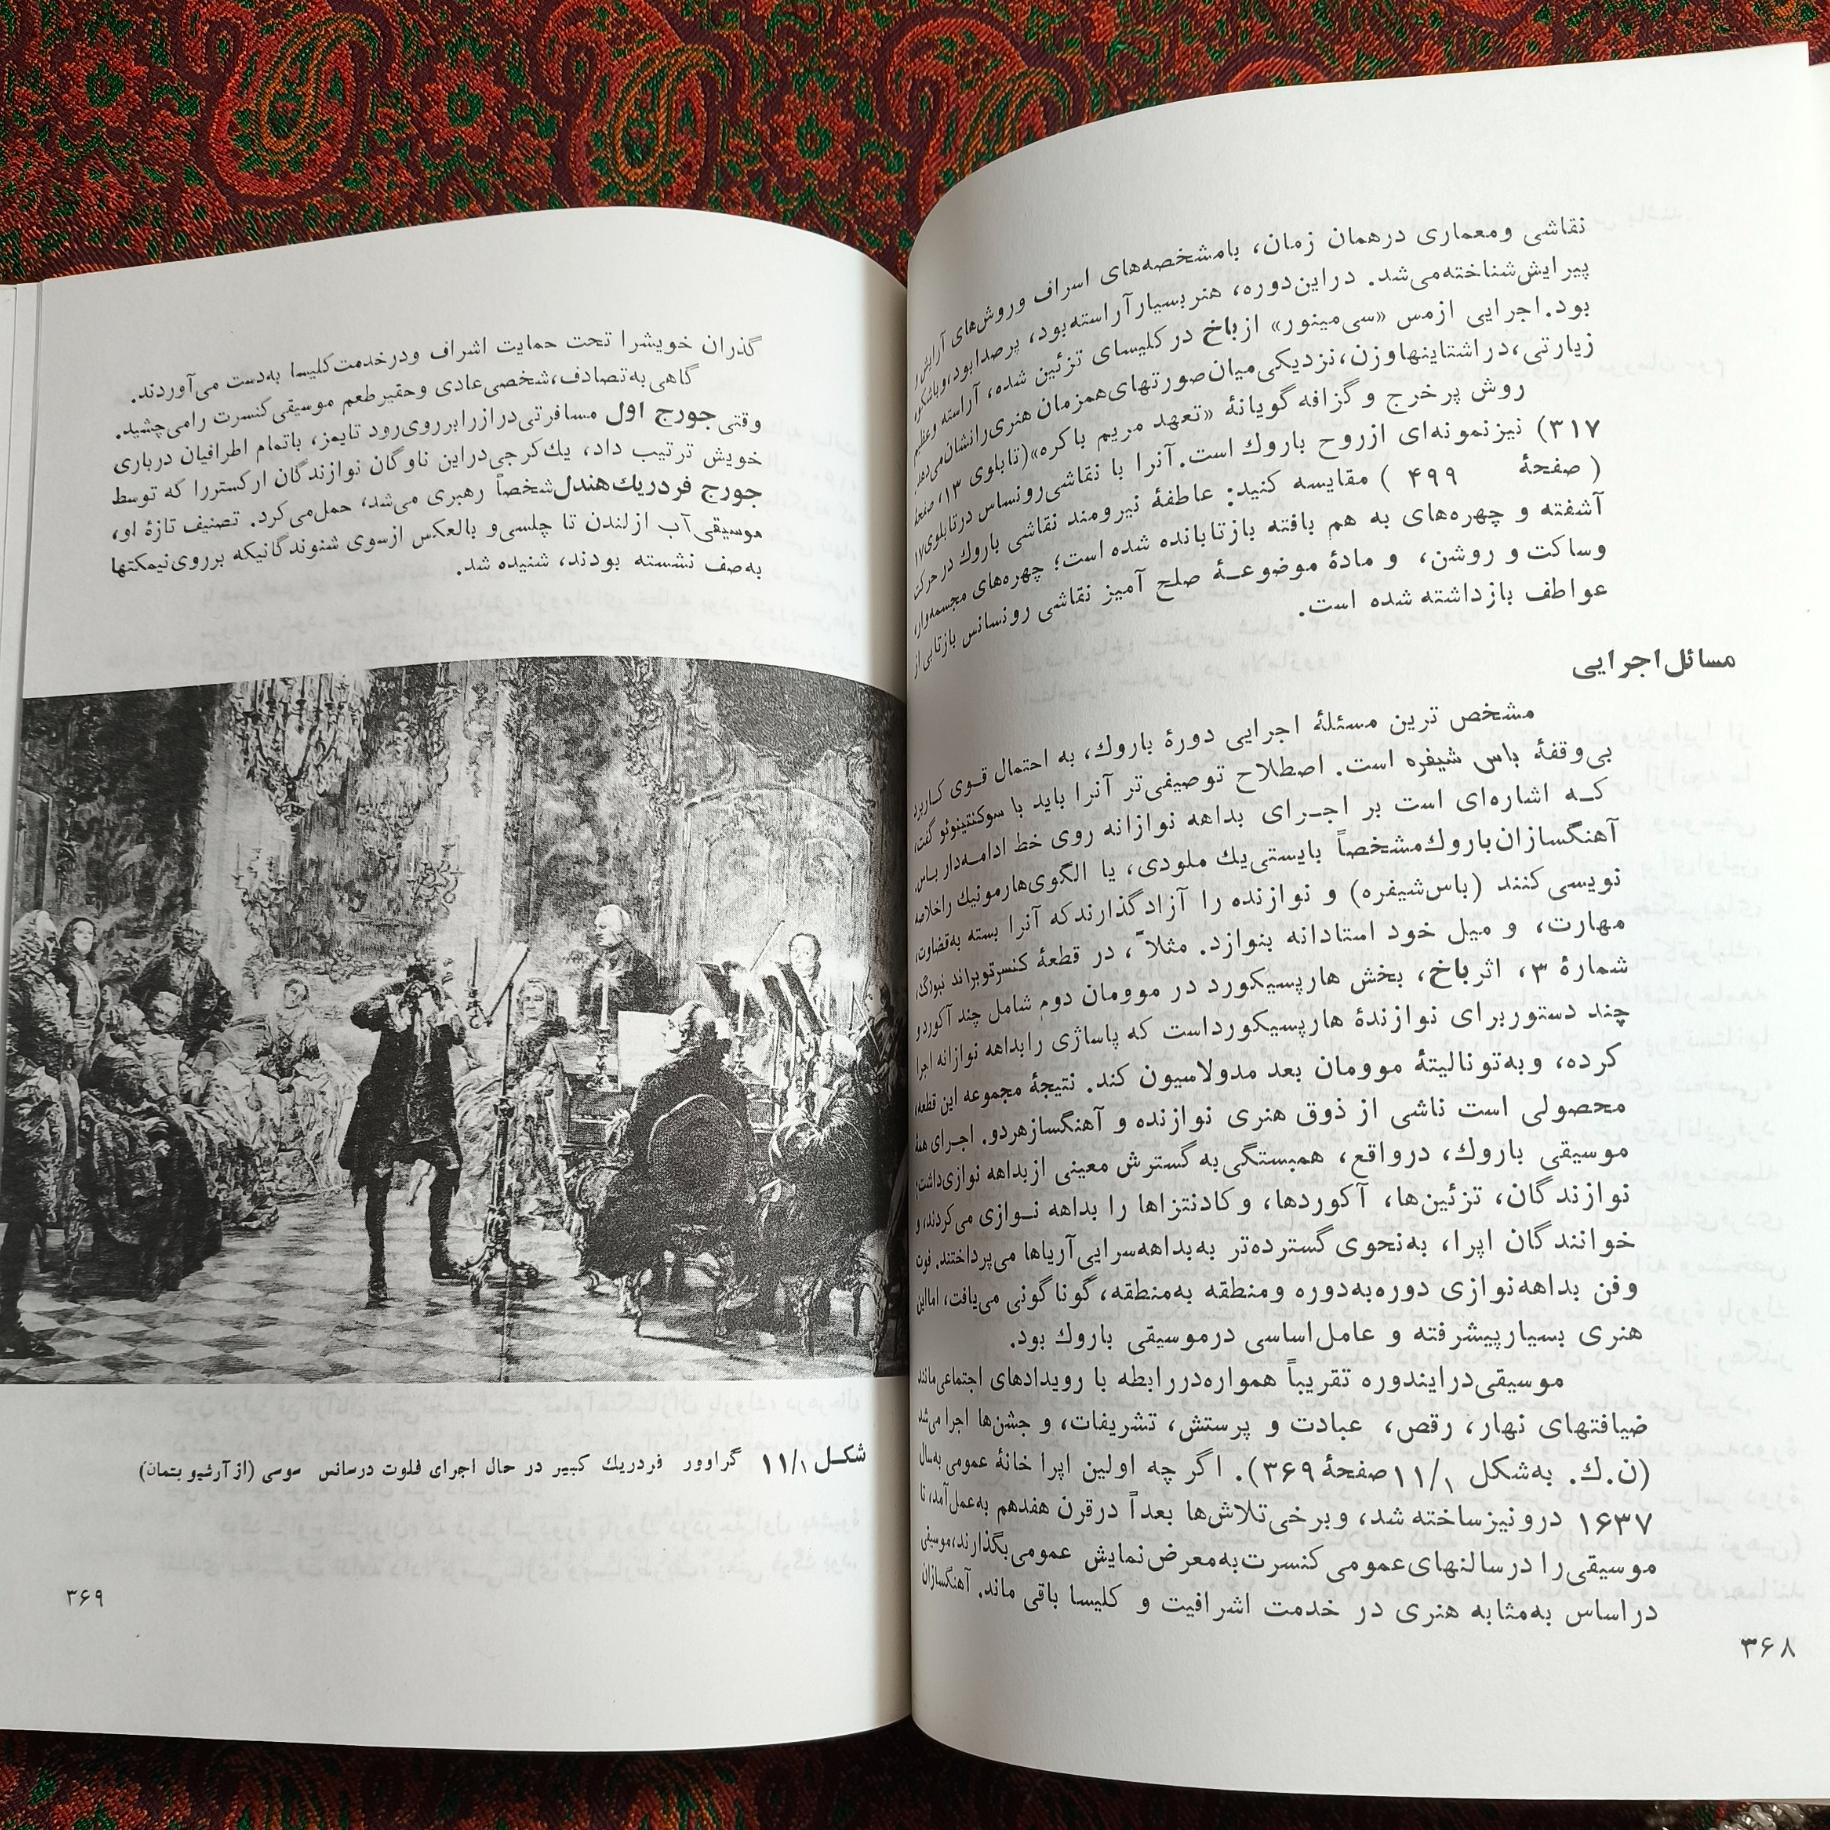 نقاشی ومعماری درهمان زمان، بامشخصه‌های اسراف وروش‌های آرایش
پیرایش‌شناخته‌می‌شد. دراین‌دوره، هنربسیارآراسته‌بود، پرصدابود،
بود.اجرایی ازمس «سی‌مینور» ازباخ درکلیسای تزئین شده، آراسته
زیارتی،دراشتاینهاوزن،نزدیکی‌میان‌صورتهای‌همزمان هنری‌رانشان‌می‌دهد.
روش پرخرج و گزافه‌گویانهٔ «تعهد مریم باکره»(تابلوی ۱۳، صفحهٔ
۳۱۷) نیزنمونه‌ای ازروح باروك است.آنرا با نقاشی‌رونساس درتابلوی۱۷
( صفحهٔ ۴۹۹ ) مقایسه کنید: عاطفهٔ نیرومند نقاشی باروك درحرکت
آشفته و چهره‌های به هم بافته بازتابانده شده است؛ چهره‌های مجسمه‌وار،
وساکت و روشن، و مادهٔ موضوعـهٔ صلح آمیز نقاشی رونسانس بازتابی از
عواطف بازداشته شده است.
مسائل‌اجرایی
مشخص ترین مسئلهٔ اجرایی دورهٔ باروك، به احتمال قـوی کاربرد
بی‌وقفهٔ باس شیفره است. اصطلاح توصیفی‌تر آنرا باید با سوکنتینوئو گفت،
کـه اشاره‌ای است بر اجـرای بداهه نوازانه روی خط ادامه‌دار باس.
آهنگسازان‌باروك‌مشخصاً بایستی‌یك ملودی، یا الگوی‌هارمونیك راخلاصه
نویسی‌کنند (باس‌شیفره) و نوازنده را آزادگذارندکه آنرا بسته به‌قضاوت،
مهارت، و میل خود استادانه بنوازد. مثلاً، در قطعهٔ کنسرتوبراند نبورگ،
شمارهٔ ۳، اثرباخ، بخش هارپسیکورد در موومان دوم شامل چند آکوردو
چند دستوربرای نوازندهٔ هارپسیکورداست که پاساژی رابداهه نوازانه اجرا
کرده، وبه‌تونالیتهٔ موومان بعد مدولاسیون کند. نتیجهٔ مجموعه این قطعه،
محصولی است ناشی از ذوق هنری نوازنده و آهنگسازهردو. اجـرای همهٔ
موسیقی باروك، درواقع، همبستگی‌به‌گسترش معینی ازبداهه نوازی‌داشت،
نوازندگان، تزئین‌ها، آکوردها، وکادنتزاها را بداهه نـوازی می‌کردند، و
خوانندگان اپرا، به‌نحوی گسترده‌تر به‌بداهه‌سرایی‌آریاها می‌پرداختند. فوت
وفن بداهه‌نوازی دوره‌به‌دوره ومنطقه به‌منطقه،گوناگونی می‌یافت، امااین
هنری بسیارپیشرفته و عامل‌اساسی درموسیقی باروك بود.
موسیقی‌درایندوره تقریباً همواره‌دررابطه با رویدادهای اجتماعی‌مانند
ضیافتهای نهار، رقص، عبادت و پرستش، تشریفات، و جشن‌ها اجرا می‌شد
(ن.ك. به‌شکل ۱۱/۱صفحهٔ۳۶۹). اگر چه اولین اپرا خانهٔ عمومی به‌سال
۱۶۳۷ درونیزساخته شد، وبرخی‌تلاش‌ها بعداً درقرن هفدهم به‌عمل‌آمد، تا
موسیقی‌را درسالنهای‌عمومی‌کنسرت‌به‌معرض‌نمایش عمومی‌بگذارند،موسیقی
دراساس به‌مثابه هنری در خدمت اشرافیت و کلیسا باقی ماند. آهنگسازان
۳۶۸
گذران خویشرا تحت حمایت اشراف ودرخدمت‌کلیسا به‌دست می‌آوردند.
گاهی‌به‌تصادف،شخصی‌عادی وحقیرطعم موسیقی‌کنسرت رامی‌چشید.
وقتی‌جورج اول مسافرتی‌درازرابرروی‌رود تایمز، باتمام اطرافیان درباری
خویش ترتیب داد، یك‌کرجی‌دراین ناوگان نوازندگان ارکستررا که توسط
جورج فردریك‌هندل‌شخصاً رهبری می‌شد، حمل‌می‌کرد. تصنیف تازهٔ او،
موسیقی‌آب ازلندن تا چلسی‌و بالعکس ازسوی شنوندگانیکه برروی‌نیمکتها
به‌صف نشسته بودند، شنیده شد.
شکـل ۱۱/۱ گراوور فردریك کبیر در حال اجرای فلوت درسانس سوسی (ازآرشیو بتمان)
۳۶۹